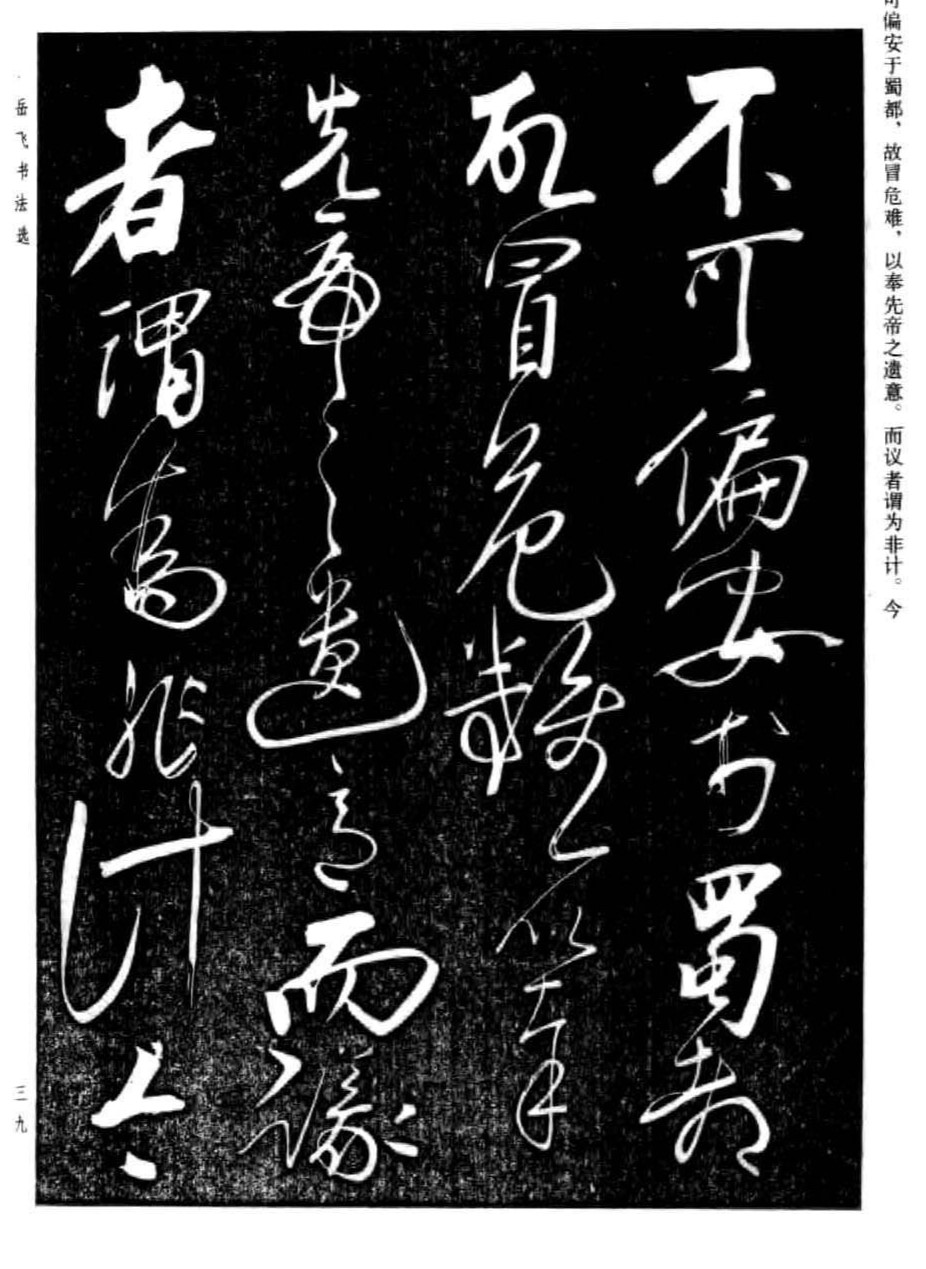 可偏安于蜀都，故冒危难，以奉先帝之遗意。而议者谓为非计。今
不可偏安於蜀都
故冒危難以奉
先帝之遺意而議
者謂為非計今
岳飞书法选
三九